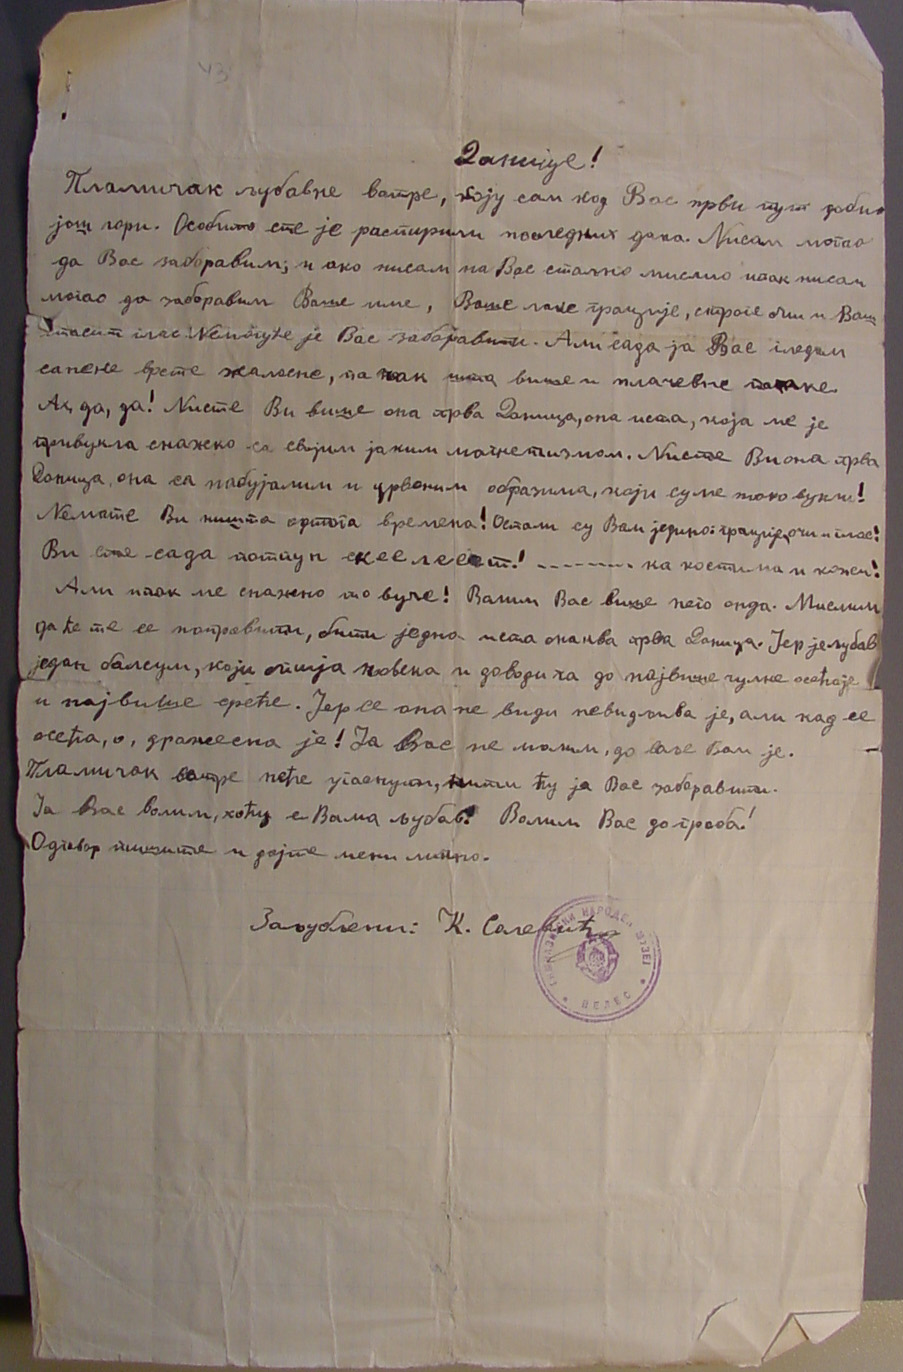 43
Данице!
Пламичак љубавне ватре, коју сам код Вас први пут добио
још гори. Особито сте је распирили последних дана. Нисам могао
да Вас заборавим; и ако нисам на Вас стално мислио ипак нисам
могао да заборавим Ваше име, Ваше лаке грације, строге очи и Ваш
гласит глас. Немогуће је Вас заборавити. Али сада ја Вас гледам
са неке врсте жалосне, па чак шта више и плачевне тачке.
Ах, да, да! Нисте Ви више она прва Даница, она иста, која ме је
привукла снажно са својим јаким магнетизмом. Нисте Ви она прва
Даница, она са набујалим и црвеним образима, који су ме тако вукли!
Немате Ви ништа од тога времена! Остали су Вам једино: грације, очи и глас!
Ви сте сада потпун скеелет! на костима и кожи!
Али ипак ме снажно то вуче! Волим Вас више него онда. Мислим
да ће те се поправити, бити једна иста онаква прва Даница. Јер је љубав
један балсум, који опија човека и доводи га до највише чулне осећаје
и највише среће. Јер се она не види невидљива је, али кад се
осећа, о, дражесна је! Ја Вас не молим, до Вас Вам је.
Пламичак ватре неће угаснути, нити ћу ја Вас заборавити.
Ја Вас волим, хоћу с Вама љубав! Волим Вас до гроба!
Одговор пишите и дајте мени лично.
Заљубљени: К. Салевић
НАРОДЕН МУЗЕЈ
ВЕЛЕС